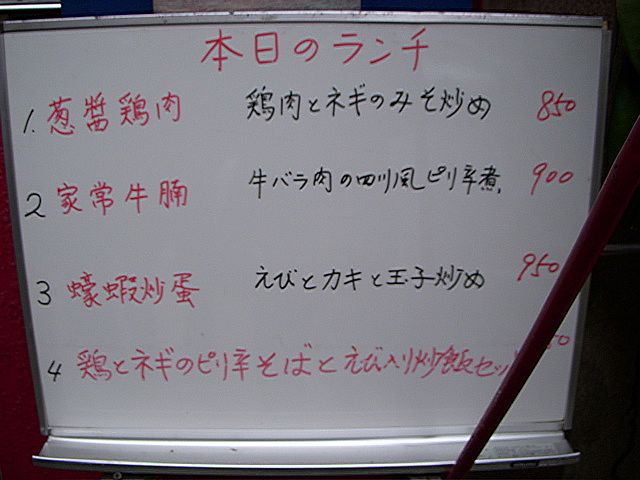 本日のランチ
1. 葱醬鶏肉 鶏肉とネギのみそ炒め 850
2 家常牛腩 牛バラ肉の四川風ピリ辛煮 900
3 蠔蝦炒蛋 えびとカキと玉子炒め 950
4 鶏とネギのピリ辛そばとえび入り炒飯セッ